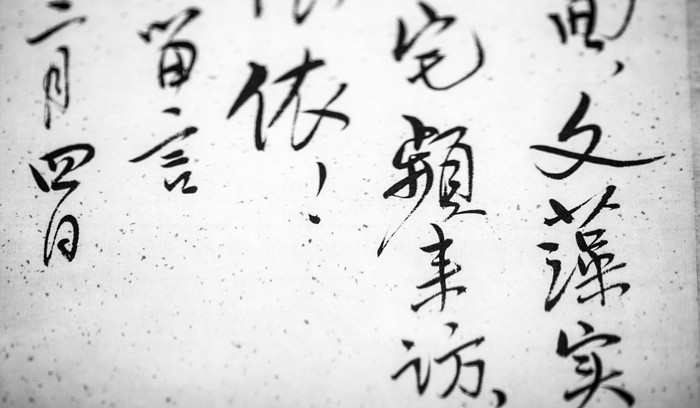 ，文藻实
宅頻来访，
依！
留言
二月四日